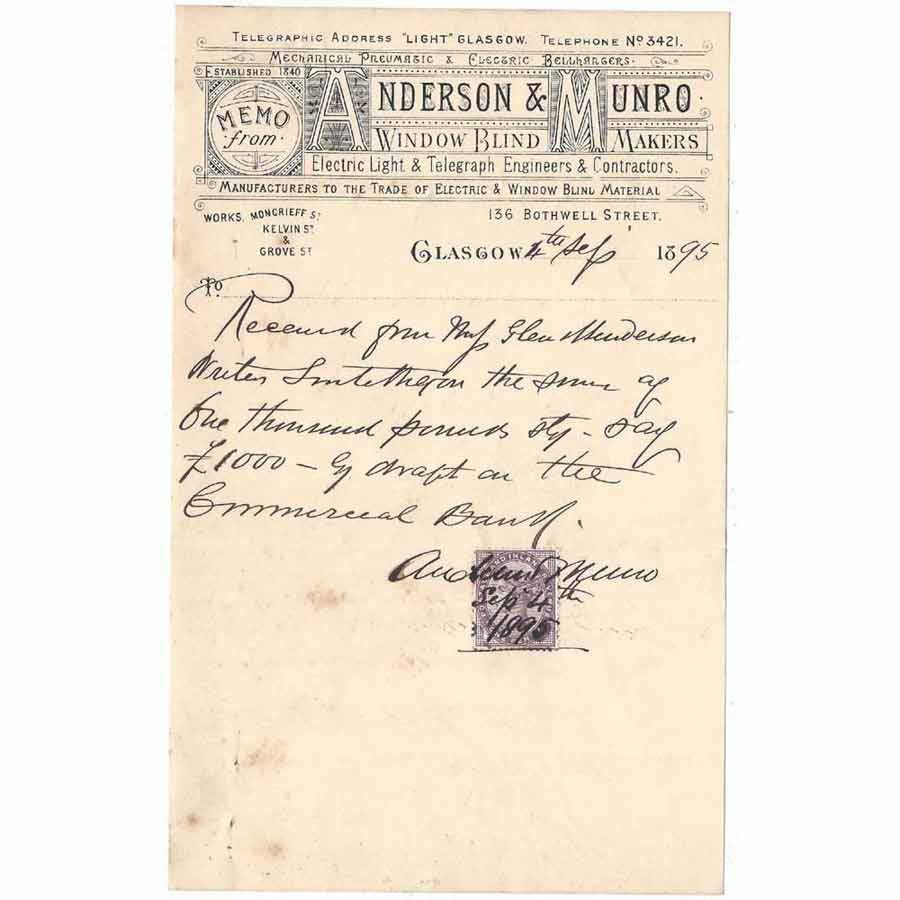 TELEGRAPHIC ADDRESS "LIGHT" GLASGOW. TELEPHONE No 3421.
MECHANICAL PNEUMATIC & ELECTRIC BELLHANGERS.
ESTABLISHED 1840
MEMO from
ANDERSON & MUNRO
WINDOW BLIND MAKERS
Electric Light & Telegraph Engineers & Contractors.
MANUFACTURERS TO THE TRADE OF ELECTRIC & WINDOW BLIND MATERIAL
WORKS, MONCRIEFF ST
KELVIN ST
&
GROVE ST
136 BOTHWELL STREET.
GLASGOW 4th Sep 1895
To
Received from Glen Henderson
Writers the sum of
One thousand pounds stg - say
£1000 - by draft on the
Commercial Bank.
Anderson & Munro
Sep 4th
1895